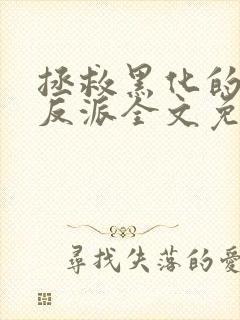 拯救黑化的
反派全文免
尋找失落的愛